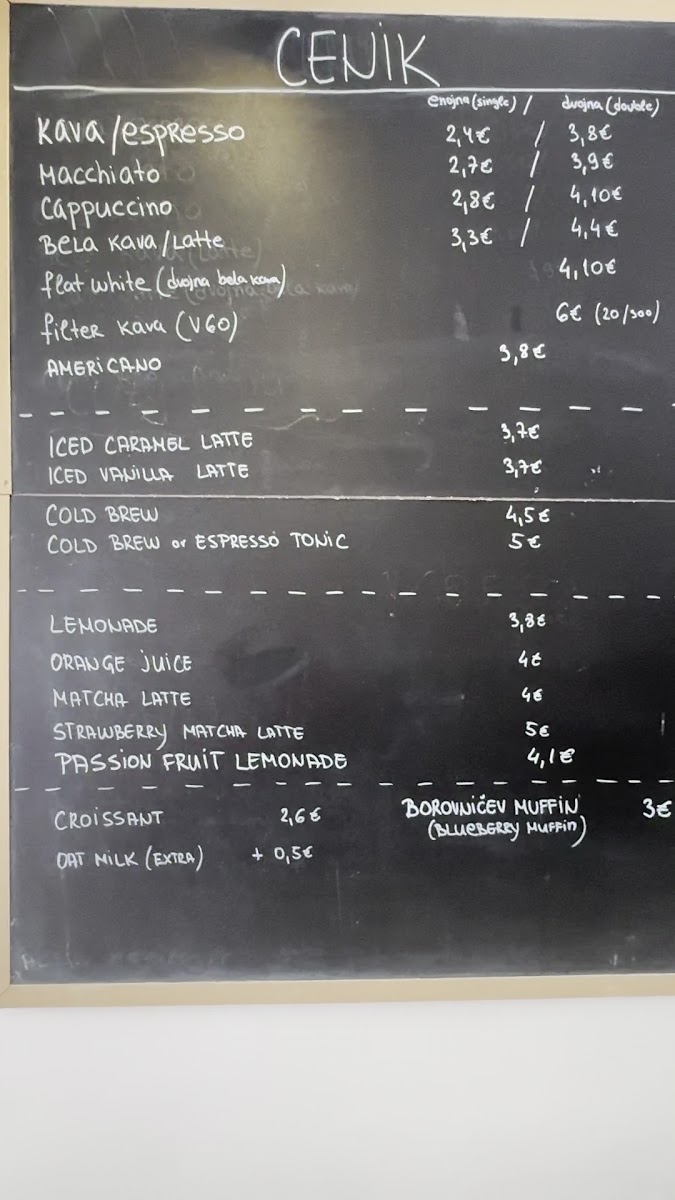 CENIK
enojna (single) / dvojna (double)
Kava/espresso 2,4€ / 3,8€
Macchiato 2,7€ / 3,9€
Cappuccino 2,8€ / 4,10€
Bela kava/Latte 3,3€ / 4,4€
flat white (dvojna bela kava) 4,10€
filter kava (V60) 6€ (20/300)
AMERICANO 3,8€
ICED CARAMEL LATTE 3,7€
ICED VANILLA LATTE 3,7€
COLD BREW 4,5€
COLD BREW or ESPRESSO TONIC 5€
LEMONADE 3,8€
ORANGE JUICE 4€
MATCHA LATTE 4€
STRAWBERRY MATCHA LATTE 5€
PASSION FRUIT LEMONADE 4,1€
CROISSANT 2,6€ BOROVNIČEV MUFFIN 3€
(BLUEBERRY MUFFIN)
OAT MILK (EXTRA) + 0,5€